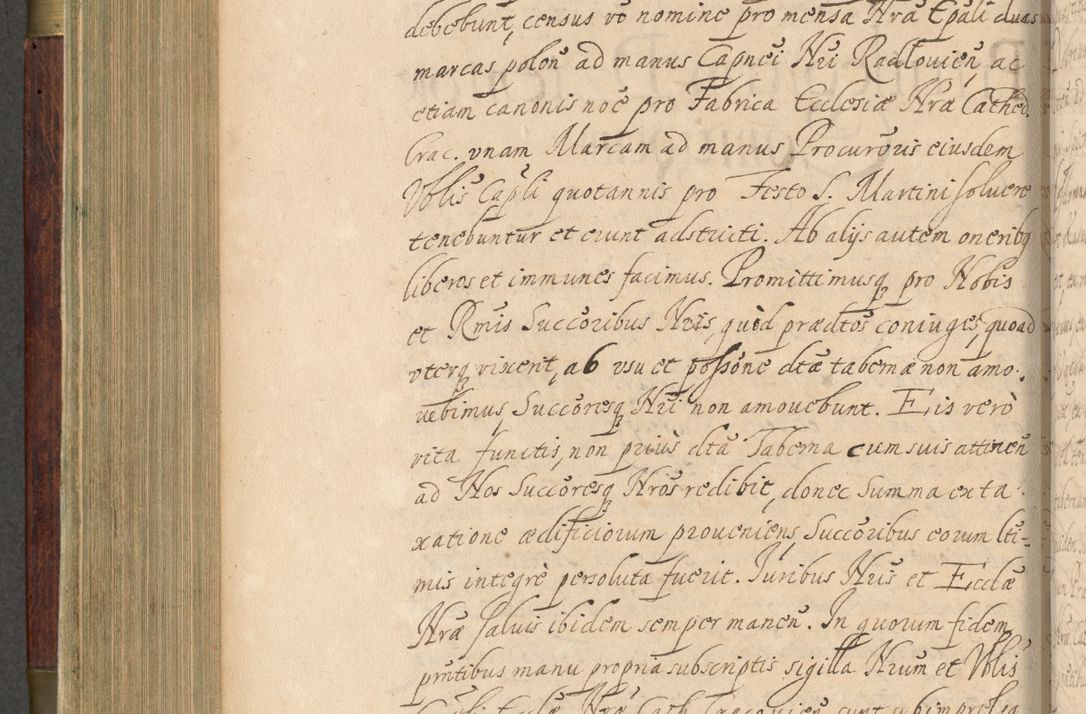 debebunt, census vō nomine pro mensa Nrā Epāli duas
marcas polon̄ ad manus Capnēi Nr̄i Radłouien̄, ac
etiam canonis noē pro Fabrica Ecclesiæ Nræ Cathed.
Crac. vnam Marcam ad manus Procurōris eiusdem
Vblis Capli quotannis pro Festo S. Martini soluere
tenebuntur et erunt adstricti. Ab alijs autem oneribq
liberos et immunes facimus. Promittimusq pro Nobis
et Rmis Succōribus Nris quòd prædtos coniuges, quoad
vterq vixerit, ab vsu et possōne dtæ tabernæ non amo:
uebimus, Succōresq Nr̄i non amouebunt. Eis verò
vita functis, non priùs dta Taberna cum suis attinen̄
ad Nos Succōresq Nros redibit, donec Summa ex ta:
xatione ædificiorum proueniens, Succōribus eorum lti-
mis integrè persoluta fuerit. Juribus Nris et Ecclæ
Nræ saluis ibidem semper manen̄. In quorum fidem
pr̄ntibus manu propria subscriptis sigilla Nrum et Vblis
Capli Ecclæ Nræ Cath. Cracouien̄. sunt subimpressa